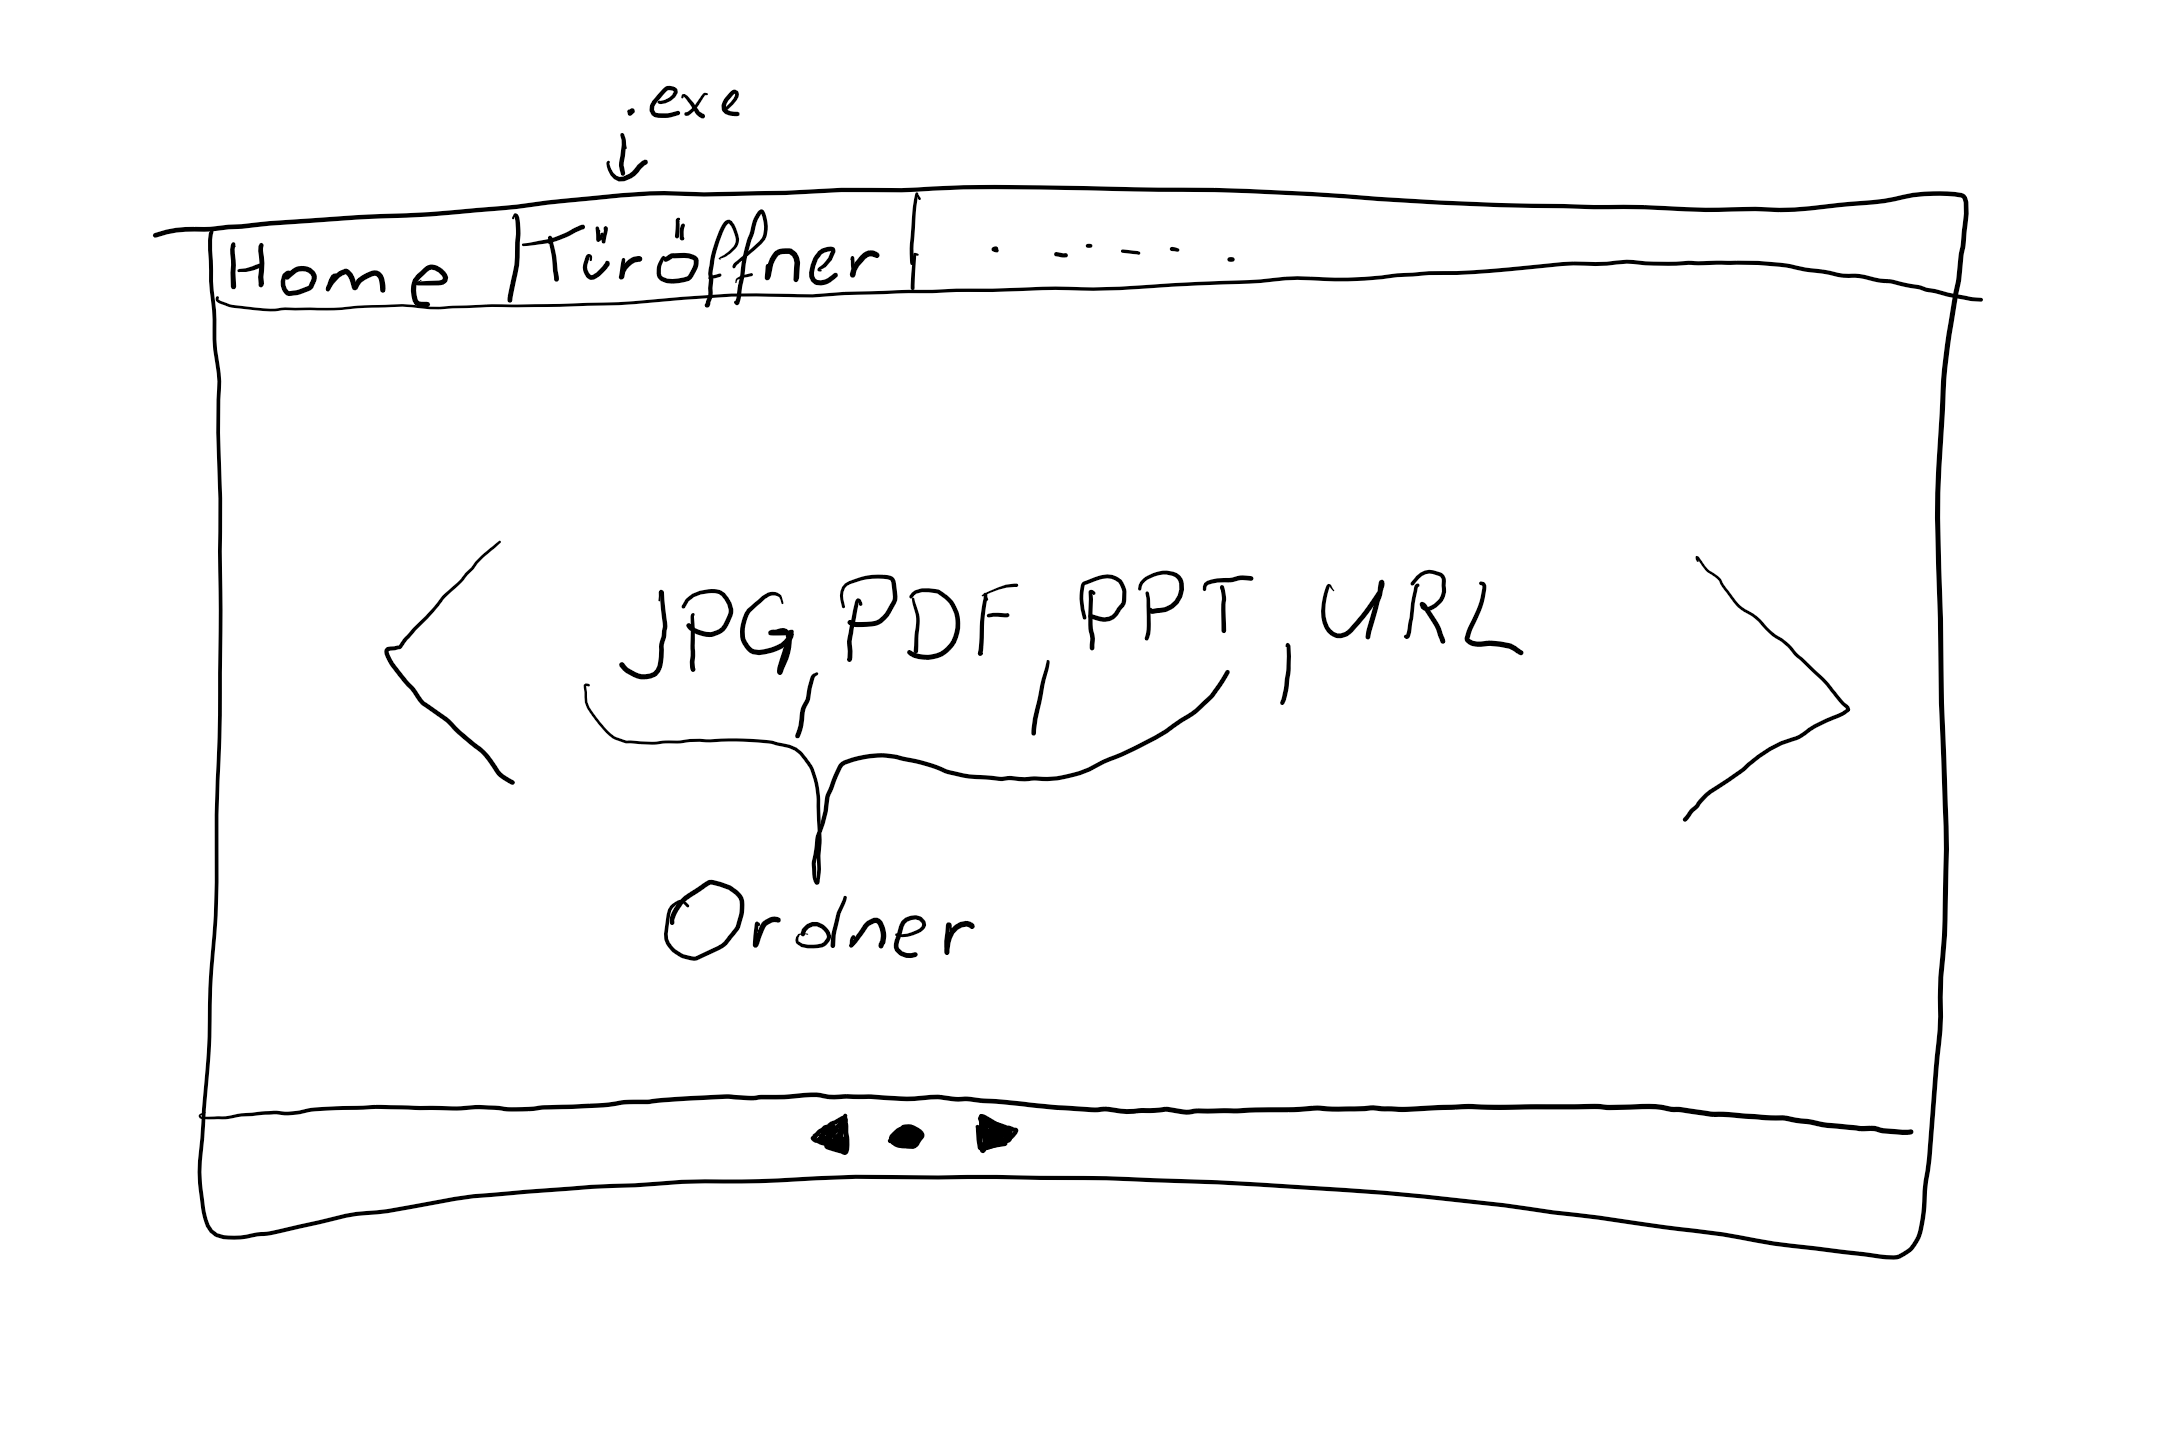 .exe
Home Türöffner . - . - - .
JPG, PDF, PPT, URL
Ordner